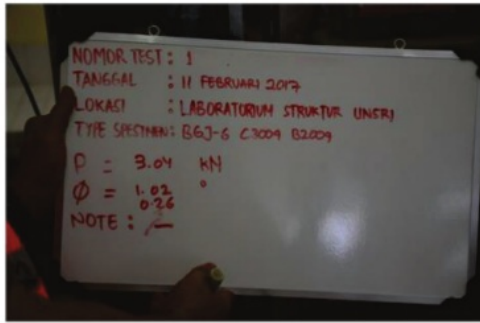 NOMOR TEST : 1
TANGGAL : 11 FEBRUARI 2017
LOKASI : LABORATORIUM STRUKTUR UNSRI
TYPE SPESIMEN : BGJ-6 C3009 B2009
P = 3.04 KN
Ø = 1.02 °
0.26
NOTE : -